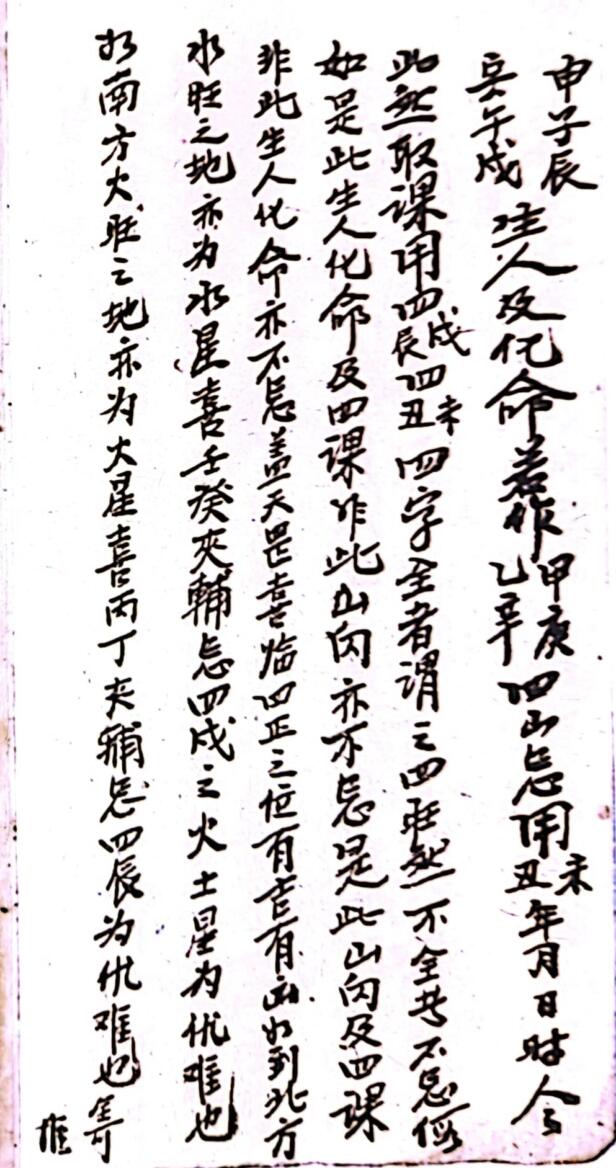 申子辰寅午戌生人及化命若作甲庚乙辛四山忌用丑未年月日时令
此煞取课用四辰戌四丑未四字全者谓之四旺煞不全者不忌假
如是此生人化命及四课非此山向亦不忌是此山向及四课
非此生人化命亦不忌盖天罡喜临四正之位有吉有凶如到北方
水旺之地亦为水星喜壬癸夹辅忌四戌之火土星为仇难也
如南方火旺之地亦为火星喜丙丁夹辅忌四辰为仇难也
推